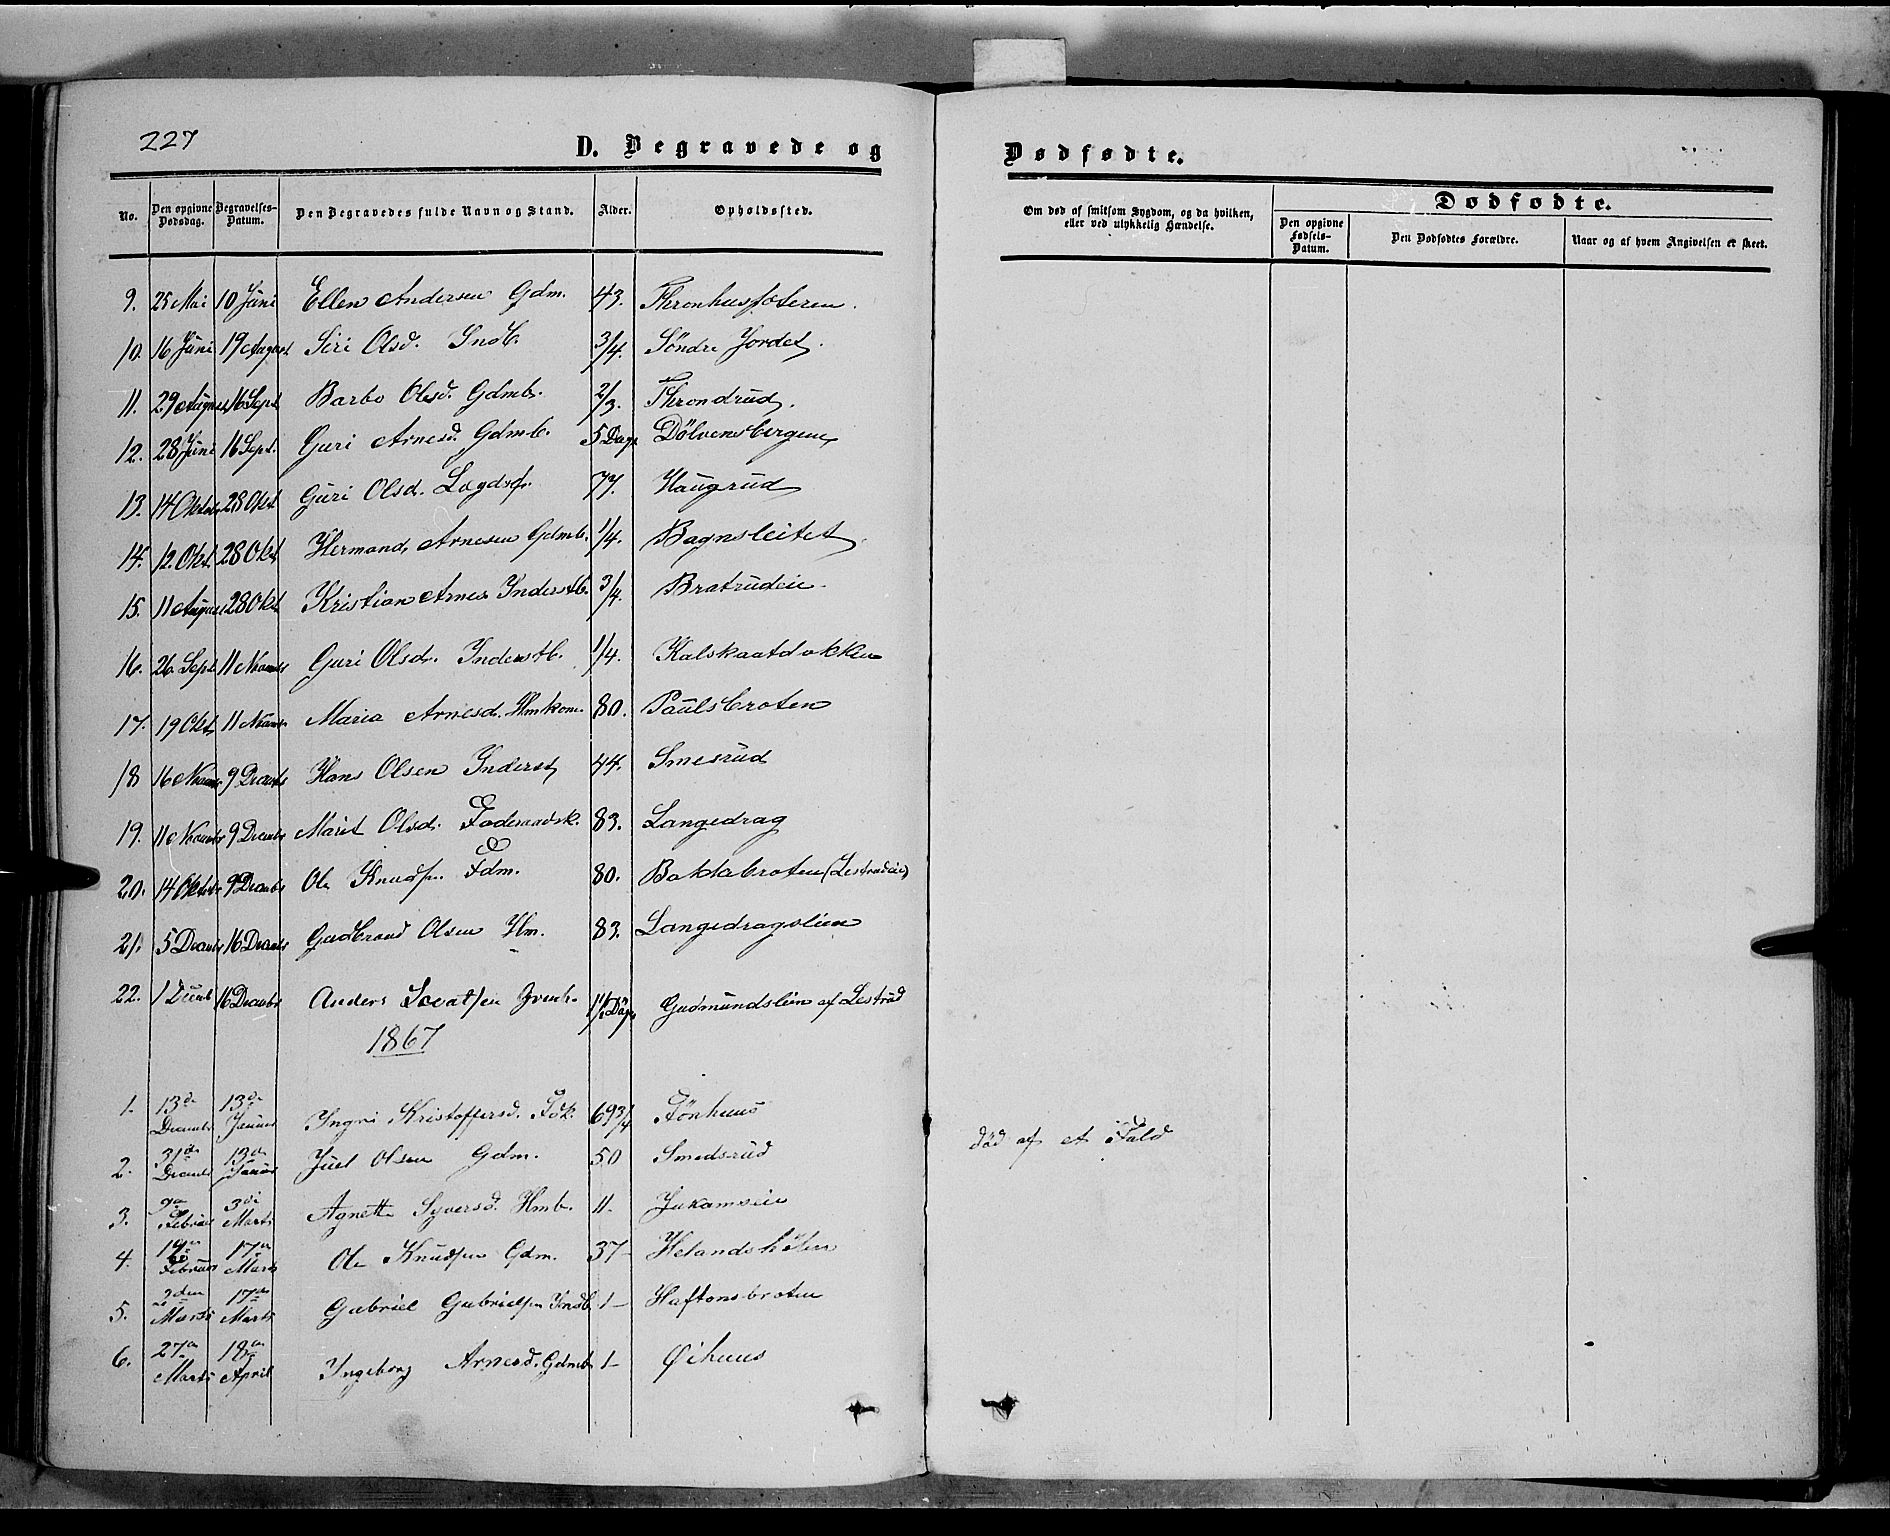 227
D. Begravede og
Dødfødte.
No. Den opgivne Dødsdag. Begravelses-Datum. Den Begravedes fulde Navn og Stand. Alder. Opholdssted.
Om død af smitsom Sygdom, og da hvilken, eller ved ulykkelig Hændelse.
Dødfødte.
Den opgivne Fødsels-Datum. Den Dødfødtes Forældre. Naar og af hvem Angivelsen er skeet.
9. 25 Mai 10 Juni Ellen Andersen Gdm. 43.
10. 16 Juni 19 August Siri Olsd. Indb. 3/4. Søndre Jordet
11. 29 August 16 Sept Barbo Olsd. Gdmb. 2/3. Throndrud.
12. 28 Juni 16 Sept. Guri Arnesd. Gdmb. 5 Dage Dølvensbergen
13. 14 Oktob 28 Okt Guri Olsd. Lægdsf. 77. Haugrud
14. 12. Okt. 28 Okt Hermand Arnesen Gdmb. 1/4. Bagnsleitet
15. 11 August 28 Okt Kristian Arnes Inderstb. 3/4. Bratrudeie
16. 26 Sept 11 Novembr Guri Olsd. Inderstb. 1/4. Kalskaatdokken
17. 19 Okt. 11 Novembr Maria Arnesd. Hmkone 80. Paulsbroten
18 16 Novembr 9 Decembr Hans Olsen Inderst 44. Smesrud
19. 11 Novembr 9 Decembr Marit Olsd. Føderaadsk. 83. Langedrag
20. 14 Oktobr 9 Decembr Ole Knudsen Fdm. 80. Baklabroten (Lestrudeie)
21. 5 Decembr 16 Decembr Gudbrand Olsen Hm. 83. Langedragslien
22. 1 Decemb 16 Decembr Anders 1 1/2 Døgn Gudmundslien af Lestrud
1867
1. 13de Decembr 13de Januar Ingri Kristoffersd. Fdk. 69 3/4 Tønhuus
2. 31de Decembr 13de Januar Juel Olsen Gdm. 50 Smedsrud død af et Fald
3. 9de Februar 3die Marts Agnette Syversd. Hmb. 11. Jukameie
4. 19de Februar 17de Marts Ole Knudsen Gdm. 37 -
5. 2den Marts 17de Marts Gabriel Gabrielsen Indb. 1 - Haftonsbroten
6. 27de Marts 18de April Ingeborg Arnesd. Gdmb. 1 - Øihuus